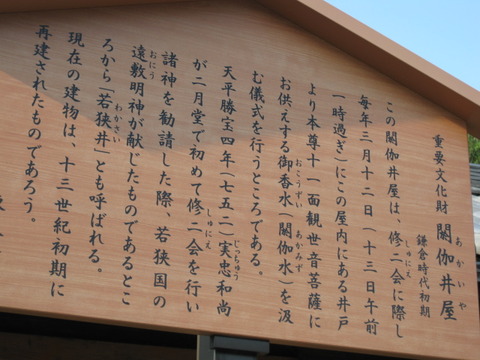 重要文化財 閼伽井屋
あかいや
鎌倉時代初期
この閼伽井屋は、修二会に際し
しゅにえ
毎年三月十二日(十三日午前
一時過ぎ)にこの屋内にある井戸
より本尊十一面観世音菩薩に
お供えする御香水(閼伽水)を汲
おこうずい あかみず
む儀式を行うところである。
天平勝宝四年(七五二)実忠和尚
じっちゅう
が二月堂で初めて修二会を行い
しゅにえ
諸神を勧請した際、若狭国の
遠敷明神が献じたものであるとこ
おにう
ろから「若狭井」とも呼ばれる。
わかさい
現在の建物は、十三世紀初期に
再建されたものであろう。